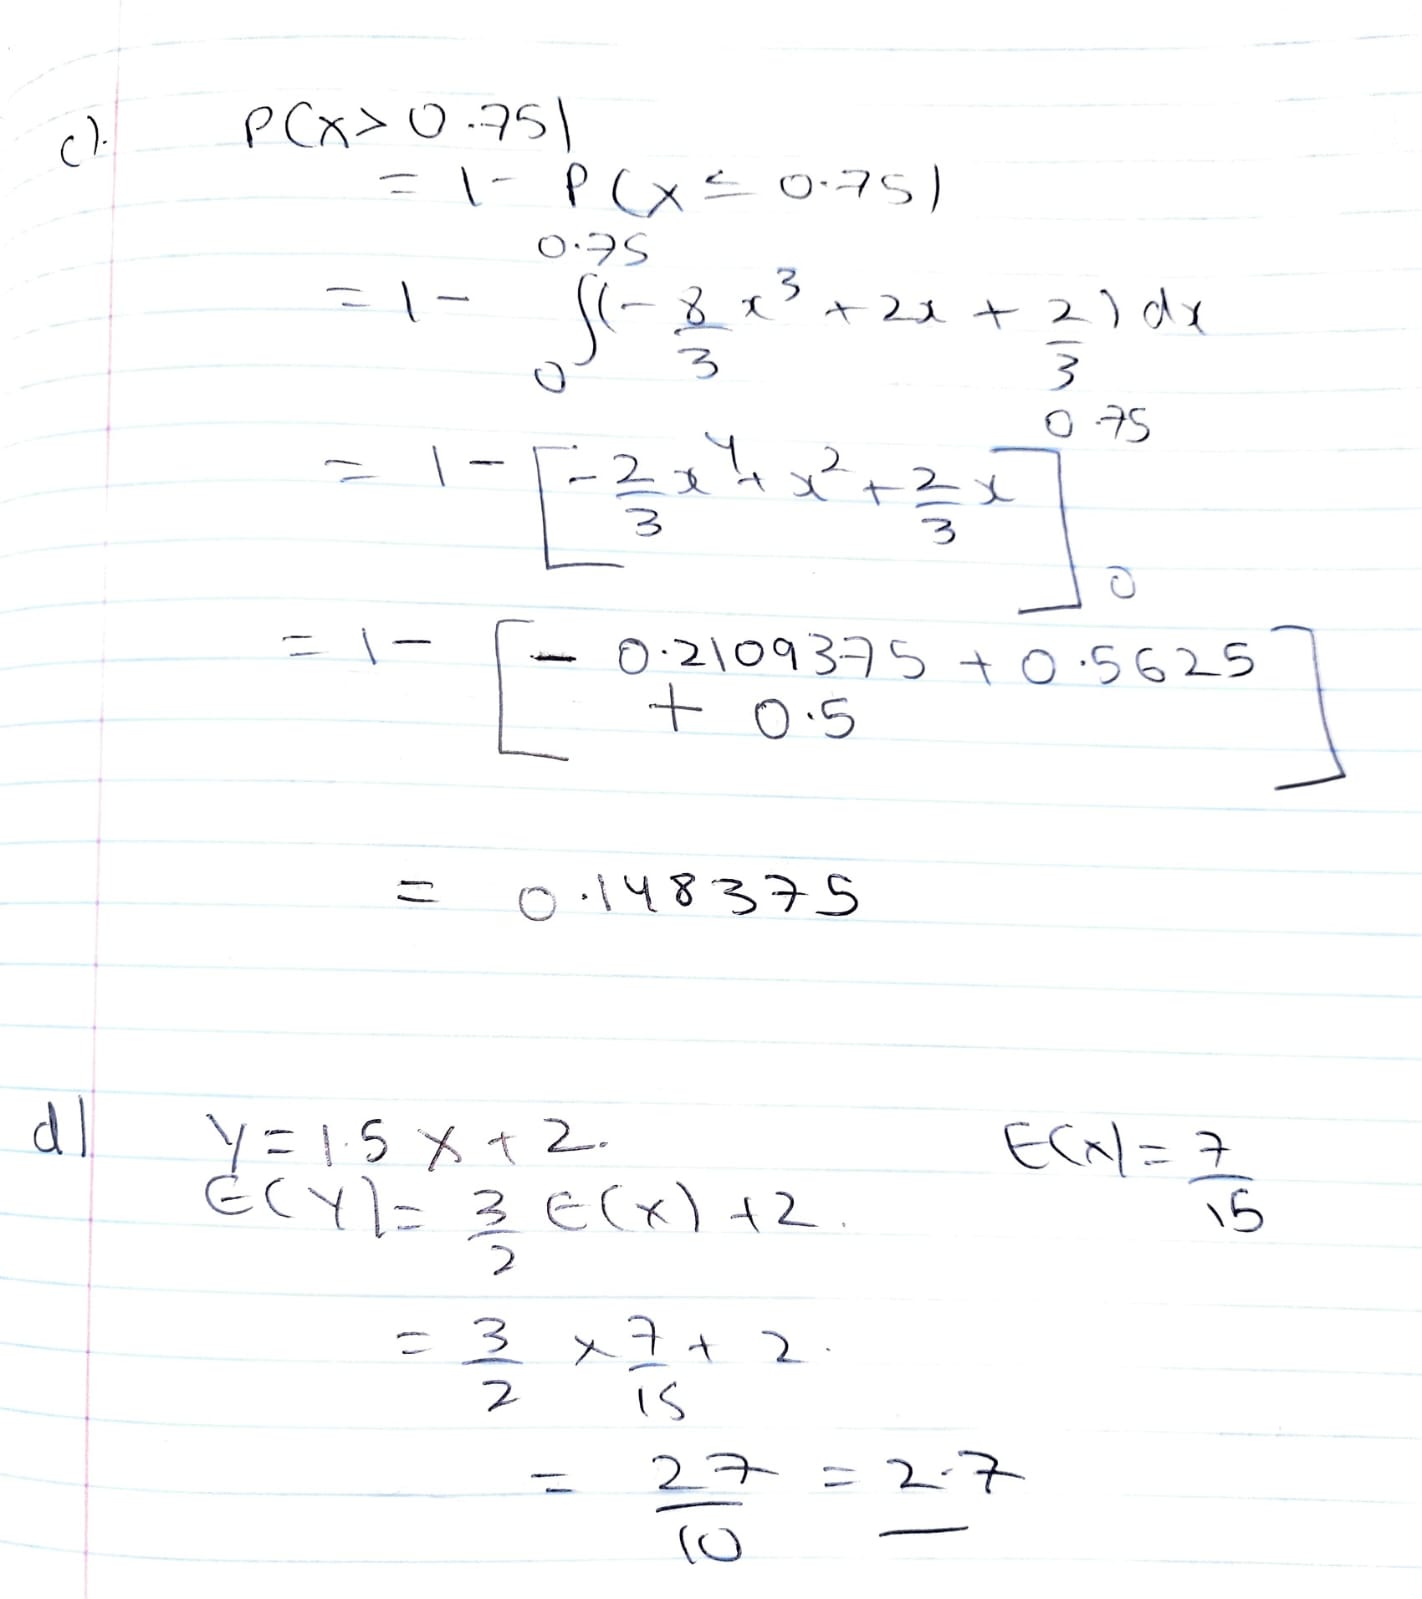 c). P(X > 0.75)
= 1 - P(X ≤ 0.75)
= 1 - ∫₀^0.75 (-8/3 x³ + 2x + 2/3) dx
= 1 - [-2/3 x⁴ + x² + 2/3 x]₀^0.75
= 1 - [- 0.2109375 + 0.5625
+ 0.5]
= 0.148375
d) Y = 1.5 X + 2. E(X) = 7/15
E(Y) = 3/2 E(X) + 2.
= 3/2 × 7/15 + 2.
= 27/10 = 2.7